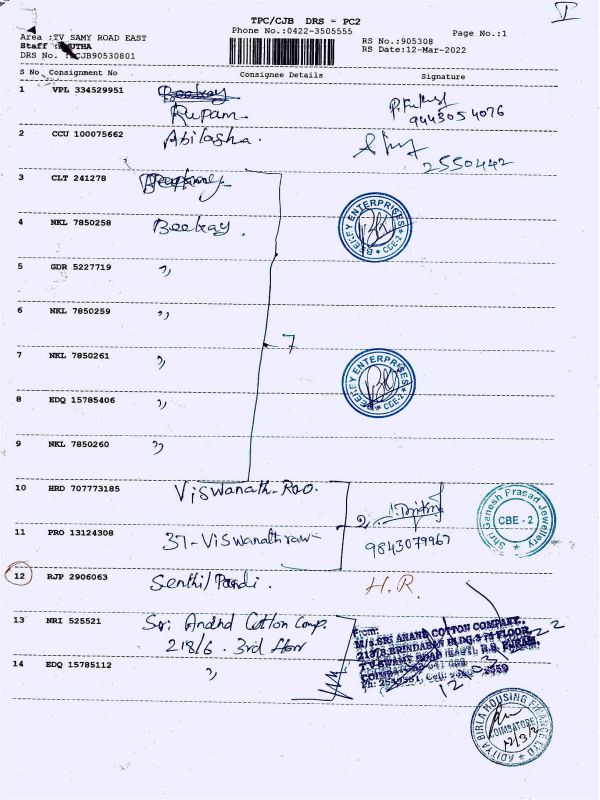 TPC/CJB DRS - PC2
Phone No.:0422-3505555
Page No.:1
Area :TV SAMY ROAD EAST
RS No.:905308
RS Date:12-Mar-2022
Staff
DRS No. CJB90530801
S No Consignment No Consignee Details Signature
1 VPL 334529951 Rupam
9443054076
2 CCU 100075662 Abilasha.
2550442
3 CLT 241278
4 NKL 7850258 Beekay.
BEEKEY ENTERPRISES
CBE-2
5 GDR 5227719 "
6 NKL 7850259 "
7
7 NKL 7850261 "
BEEKEY ENTERPRISES
CBE-2
8 EDQ 15785406 "
9 NKL 7850260 "
10 HRD 707773185 Viswanath-Rao.
2
Shri Ganesh Prasad Jewellery
CBE - 2
11 PRO 13124308 37-Viswanathrao
9843079967
12 RJP 2906063 Senthil Pandi. H.R.
13 NRI 525521 Sri Anand Cotton Comp.
218/6. 3rd floor
From:
M/S.SRI ANAND COTTON COMPANY.,
14 EDQ 15785112 "
ADITYA BIRLA HOUSING FINANCE LTD
COIMBATORE
12/3/22